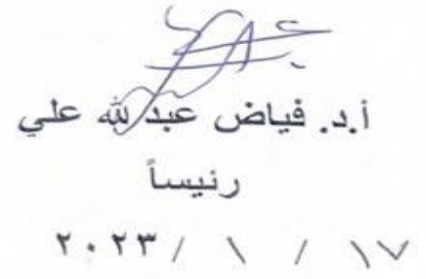 أ.د. فياض عبد لله علي
رئيساً
٢٠٢٣ / ١ / ١٧